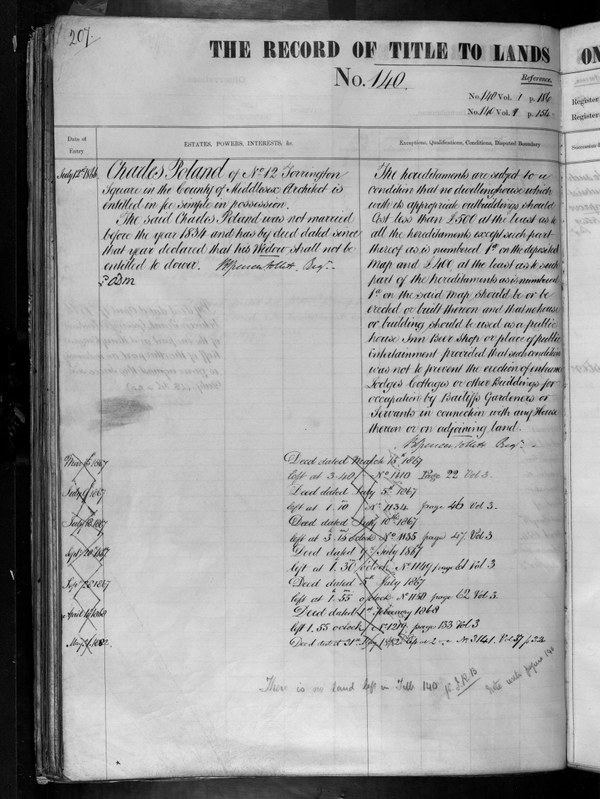 207.
THE RECORD OF TITLE TO LANDS
No. 140.
Reference.
No. 140 Vol. 1 p. 186
No. 140 Vol. 9 p. 154
Date of Entry
ESTATES, POWERS, INTERESTS, &c.
Exceptions, Qualifications, Conditions, Disputed Boundary
Charles Poland of No 12 Torrington
Square in the County of Middlesex Architect is
entitled in fee simple in possession.
The said Charles Poland was not married
before the year 1834 and has by deed dated since
that year declared that his Widow shall not be
entitled to dower. Regr.
The hereditaments are subject to a
condition that no dwellinghouse which
with its appropriate outbuildings should
cost less than £500 at the least as to
all the hereditaments except such part
thereof as is numbered 1a on the deposited
map and £400 at the least as to such
part of the hereditaments as is numbered
1a on the said map should be or be
erected or built thereon and that no house
or building should be used as a public
house Inn Beer shop or place of public
entertainment provided that such condition
was not to prevent the erection of entrance
Lodges Cottages or other Buildings for
occupation by Bailiffs Gardeners or
Servants in connection with any House
thereon or on adjoining land.
Regr.
1867 Deed dated March 1867
left at 3.40 No 1110 Page 22 Vol 3.
July 1867 Deed dated July 5th 1867
left at 1.10 No 1134 page 46 Vol 3.
July 1867 Deed dated July 10th 1867
left at 3.15 o'clock No 1135 page 47 Vol 3
Sept 1867 Deed dated July 1867
left at 1.50 o'clock No 1149 page 61 Vol 3
Sept 1867 Deed dated July 1867
left at 1.55 o'clock No 1150 page 62 Vol 3.
April 1868 Deed dated 1st February 1868
left 1.55 o'clock No 1219 page 133 Vol 3
May 1882 Deed dated 31st May 1882 No. 3141. Vol. 37 p. 22
There is no land left in Title 140
J.R.B
note with papers 140
THE RECORD
ON
Register
Register